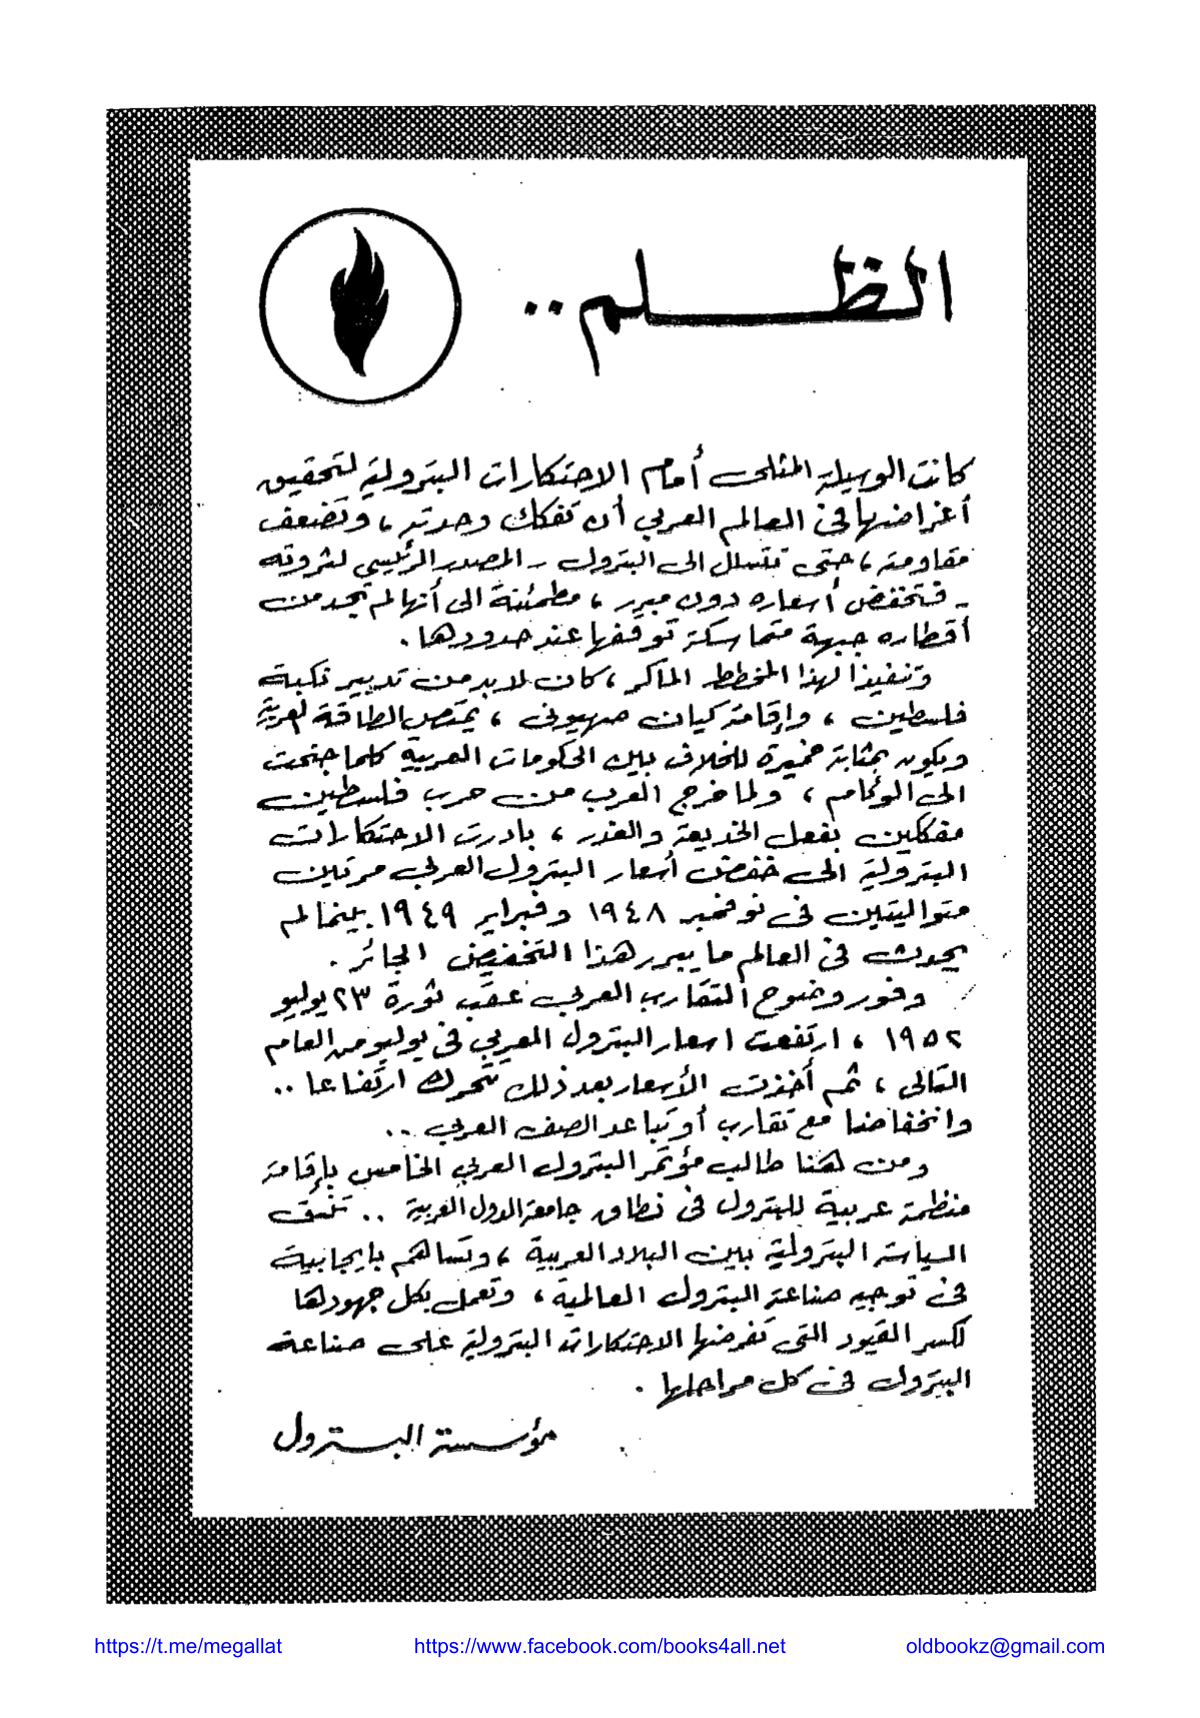 الظلم ..
كانت الوسيلة المثلى أمام الاحتكارات البترولية لتحقيق
أغراضها فى العالم العربي أن تفكك وحدته ، وتضعف
مقاومته ، حتى تتسلل الى البترول - المصدر الرئيسي لثروته
- فتخفض أسعاره دون مبرر ، مطمئنة الى أنها لم تجد من
أقطاره جبهة متماسكة توقفها عند حدودها .
وتنفيذا لهذا المخطط الماكر ، كان لابد من تدبير نكبة
فلسطين ، وإقامة كيان صهيونى ، يمتص الطاقة العربية
ويكون بمثابة خميرة للخلاف بين الحكومات العربية كلما جنحت
الى الوئام ، ولما خرج العرب من حرب فلسطين
مفككين بفعل الخديعة والغدر ، بادرت الاحتكارات
البترولية الى خفض أسعار البترول العربي مرتين
متواليتين فى نوفمبر ١٩٤٨ وفبراير ١٩٤٩ بينما لم
يحدث فى العالم ما يبرر هذا التخفيض الجائر .
وفور وضوح التقارب العربى عقب ثورة ٢٣ يوليو
١٩٥٢ ، ارتفعت اسعار البترول العربي فى يوليو من العام
التالى ، ثم أخذت الأسعار بعد ذلك تتحرك ارتفاعا ..
وانخفاضا مع تقارب أو تباعد الصف العربى ..
ومن هنا طالب مؤتمر البترول العربي الخامس بإقامة
منظمة عربية للبترول فى نطاق جامعة الدول العربية .. تنسق
السياسة البترولية بين البلاد العربية ، وتساهم بايجابية
فى توجيه صناعة البترول العالمية ، وتعمل بكل جهودها
لكسر القيود التى تفرضها الاحتكارات البترولية على صناعة
البترول فى كل مراحلها .
مؤسسة البترول
https://t.me/megallat https://www.facebook.com/books4all.net oldbookz@gmail.com